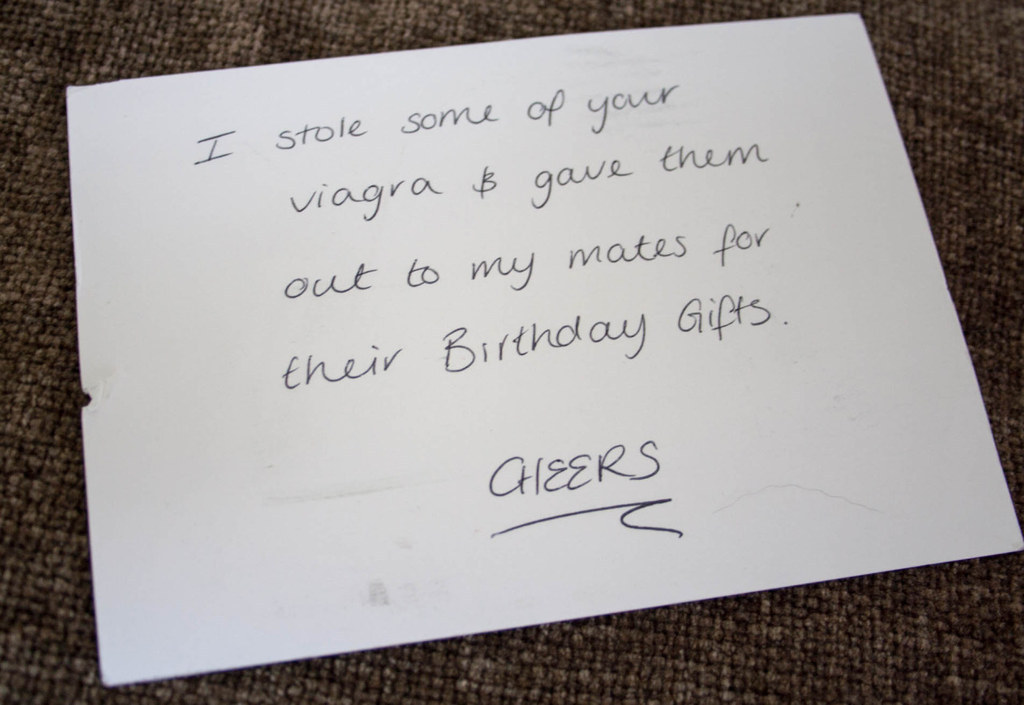 I stole some of your
viagra & gave them
out to my mates for
their Birthday Gifts.
CHEERS